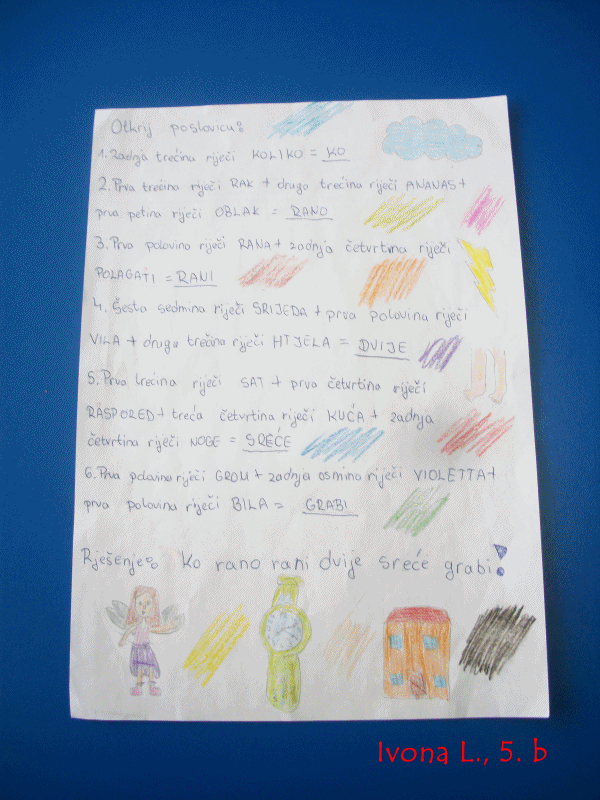 Otkrij poslovicu:
1. Zadnja trećina riječi KOLIKO = KO
2. Prva trećina riječi RAK + druga trećina riječi ANANAS +
prva petina riječi OBLAK = RANO
3. Prva polovina riječi RANA + zadnja četvrtina riječi
POLAGATI = RANI
4. Šesta sedmina riječi SRIJEDA + prva polovina riječi
VILA + druga trećina riječi HTJELA = DVIJE
5. Prva trećina riječi SAT + prva četvrtina riječi
RASPORED + treća četvrtina riječi KUĆA + zadnja
četvrtina riječi NOGE = SREĆE
6. Prva polovina riječi GROM + zadnja osmina riječi VIOLETTA +
prva polovina riječi BILA = GRABI
Rješenje: Ko rano rani dvije sreće grabi!
Ivona L., 5. b